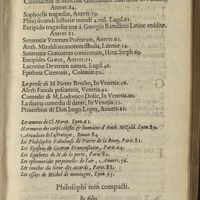 Sophoclis tragœdiæ, Antver. 79.
Plinij secundi historia mundi 4. vol. Lugd. 61.
Euripidis tragœdiæ tres à Georgio Ratallero Latine æditæ,
Antver. 81.
Sententiæ Veterum Poëtarum, Antver. 61.
Anth. Mizaldi arcanorum libulla, Lutetiæ. 54.
Sententiæ Græcorum comicorum, Henr. Steph. 69.
Euripides Græce, Antver. 71.
Lucretius De rerum natura, Lugd. 46.
Epitheta Ciceronis, Coloniæ 71.
Le prose di M. Pietro Bembo, In Venetia.
Alceo Fauola pescatoria, Venetia.
Comedie di M. Lodouico Dolce, In Venetia. 60.
La diuina comedia di dante, In Venetia.
Prouerbios de Don Iñigo Lopez, Anuers. 81.
Les œuures de Cl. Marot, Lyon. 61.
Harmonie des corps celestes & humains d'Anth. Mizald. Lyon. 80.
L'Arcadienne de l'Aphrodyse, Rouen. 84
Le Philosophie Fabuleuse de Pierre de la Riuey, Paris. 81.
Les Epistres de Guazzo
Les Epithetes de M. de la porte, Paris 81.
Les ephemerides perpetuelles de l'air, Anuers. 56.
Les touches du Seigneur des accords, Paris 81.
Les essays de Michel de montagne, Lyon. 93.
Philosophi non compacti.
In folio.